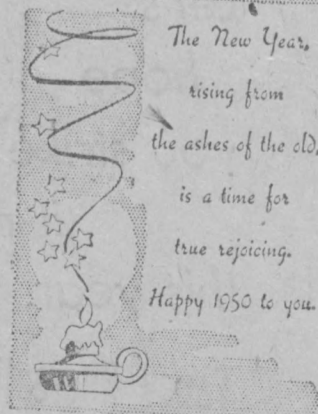 The New Year,
rising from
the ashes of the old,
is a time for
true rejoicing.
Happy 1950 to you.